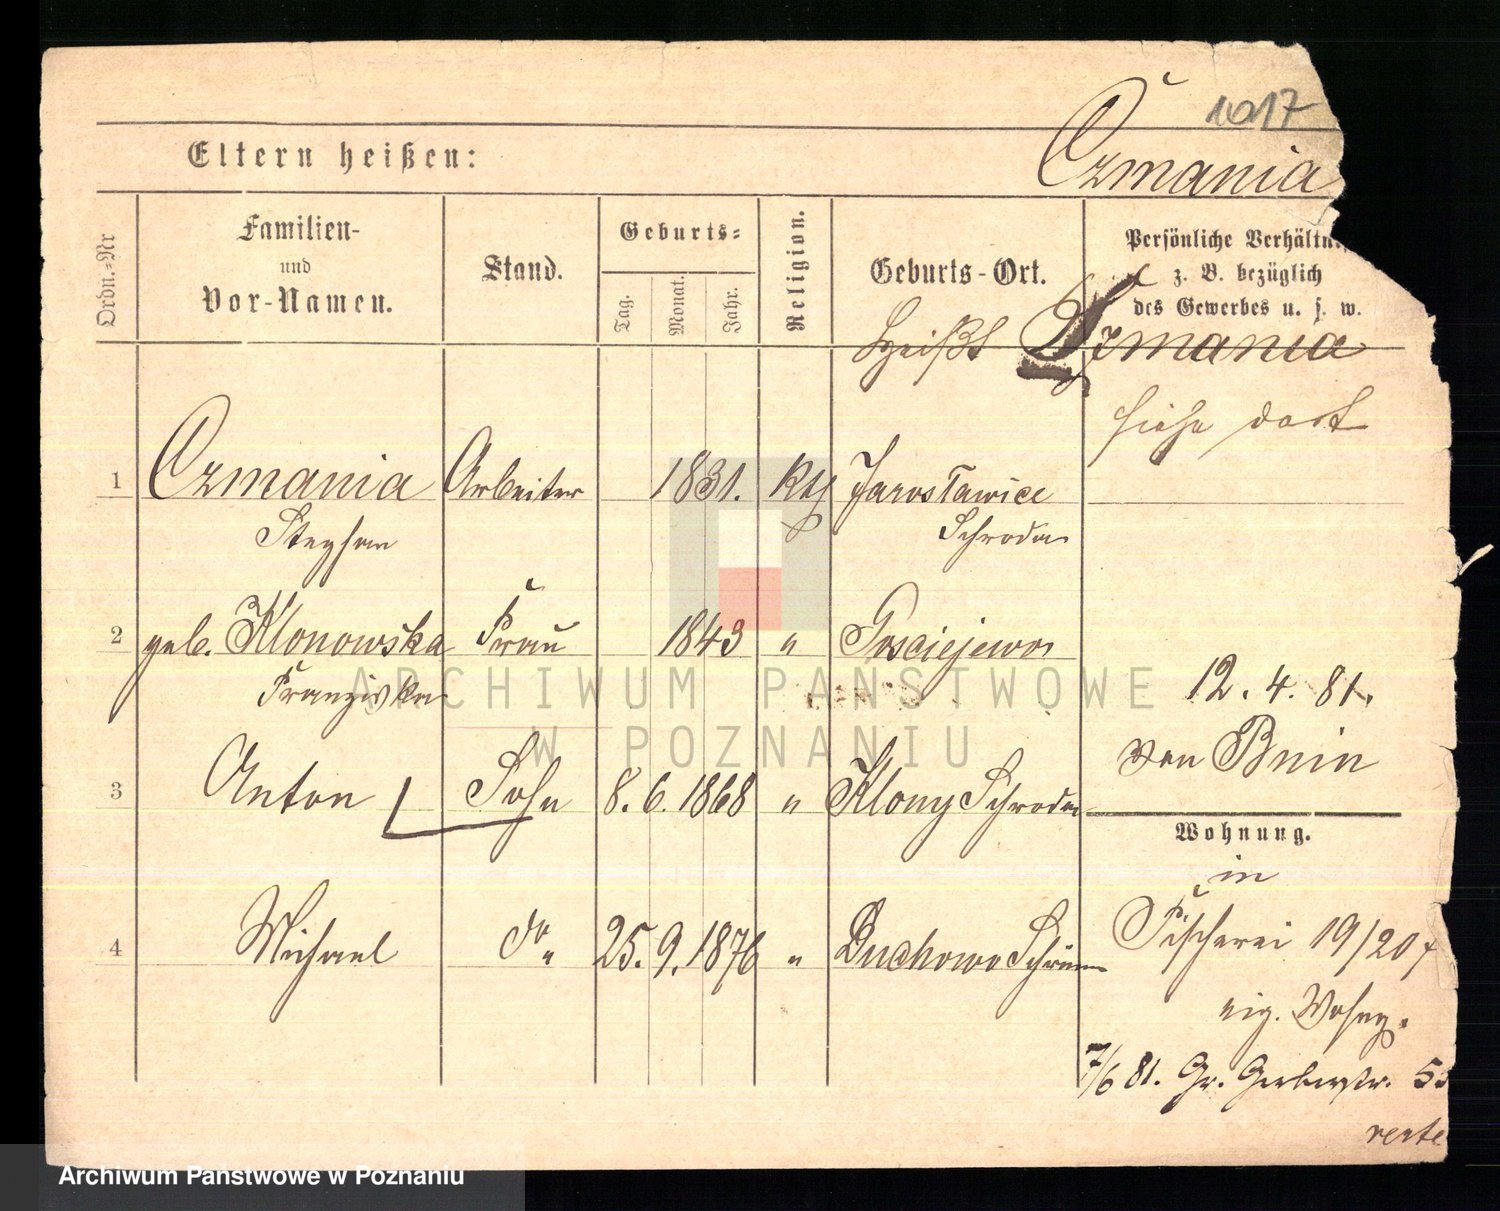 1017
Czmania
Eltern heißen:
Ordn.=Nr
Familien-
und
Vor-Namen.
Stand.
Geburts=
Tag.
Monat.
Jahr.
Religion.
Geburts-Ort.
Persönliche Verhältn
z. B. bezüglich
des Gewerbes u. s. w.
heißt Dzmania
siehe dort
1 Czmania Arbeiter 1831. kth Jarosławice
Stephan Schroda
2 geb. Klonowska Frau 1843 " Gosciejewo
Franziska
12. 4. 81.
von Bnin
3 Anton Sohn 8. 6. 1868 " Klony Schroda
Wohnung.
in
4 Michael do " 25. 9. 1876 " Buchowo Schrimm
Fischerei 19/20
eig. Wohng.
7/6 81. Gr. Gerberstr. 53
ARCHIWUM PAŃSTWOWE
W POZNANIU
Archiwum Państwowe w Poznaniu